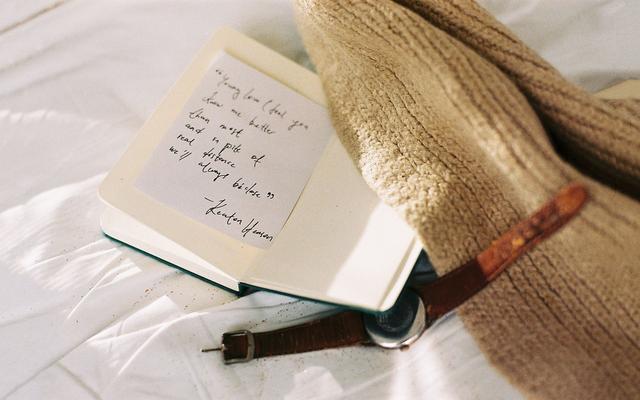 "Young Love I feel you
know me better
than most
and in spite of
real distance
we'll always be close"
- Keaton Henson